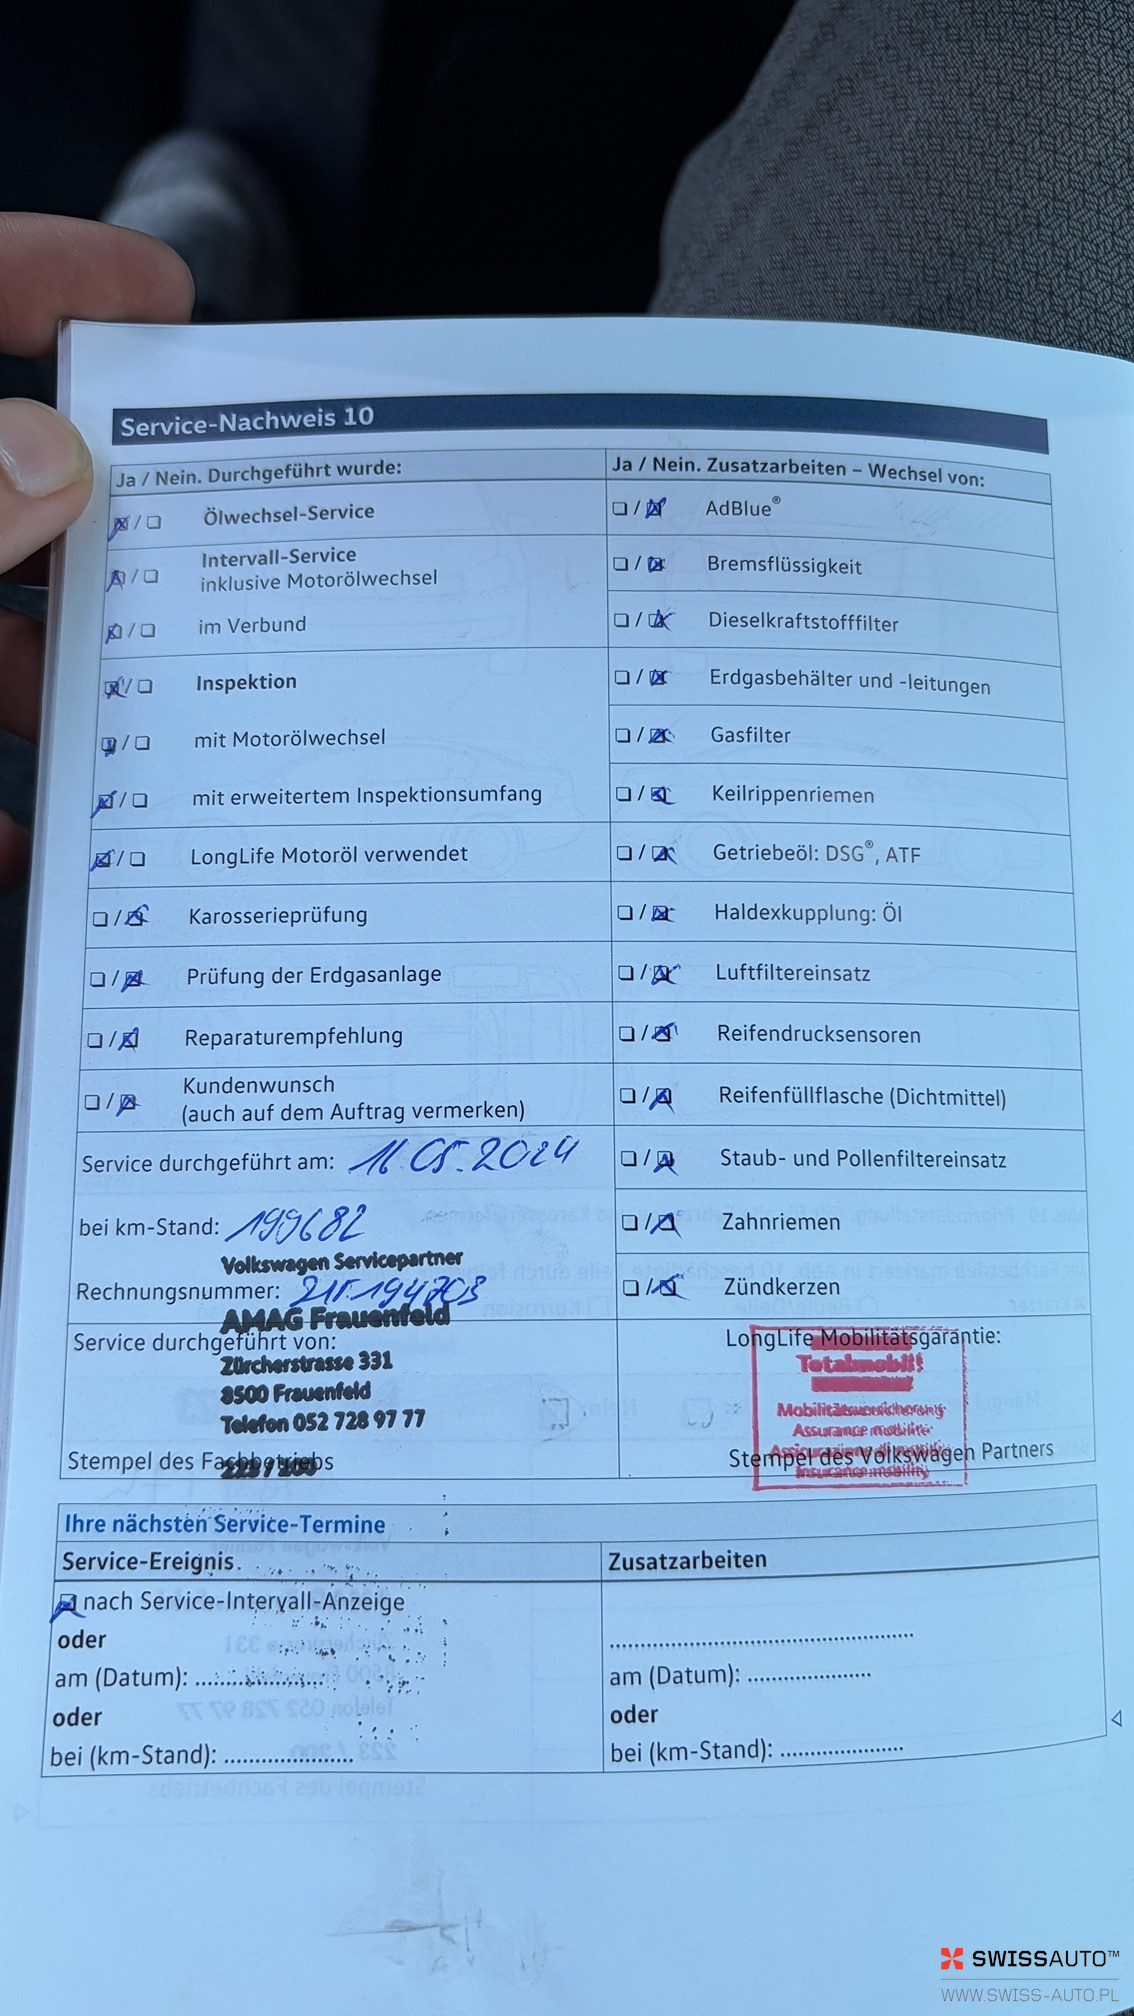 Service-Nachweis 10
Ja / Nein. Durchgeführt wurde:
Ölwechsel-Service
Intervall-Service
inklusive Motorölwechsel
im Verbund
Inspektion
mit Motorölwechsel
mit erweitertem Inspektionsumfang
LongLife Motoröl verwendet
Karosserieprüfung
Prüfung der Erdgasanlage
Reparaturempfehlung
Kundenwunsch
(auch auf dem Auftrag vermerken)
Service durchgeführt am: 16.05.2024
bei km-Stand: 199682
Volkswagen Servicepartner
Rechnungsnummer:
AMAG Frauenfeld
Service durchgeführt von:
Zürcherstrasse 331
8500 Frauenfeld
Telefon 052 728 97 77
Stempel des Fachbetriebs
223 / 200
Ja / Nein. Zusatzarbeiten – Wechsel von:
AdBlue®
Bremsflüssigkeit
Dieselkraftstofffilter
Erdgasbehälter und -leitungen
Gasfilter
Keilrippenriemen
Getriebeöl: DSG®, ATF
Haldexkupplung: Öl
Luftfiltereinsatz
Reifendrucksensoren
Reifenfüllflasche (Dichtmittel)
Staub- und Pollenfiltereinsatz
Zahnriemen
Zündkerzen
LongLife Mobilitätsgarantie:
Totalmobil!
Mobilitätsversicherung
Assurance mobilité
Assicurazione di mobilità
Stempel des Volkswagen Partners
Insurance mobility
Ihre nächsten Service-Termine
Service-Ereignis
nach Service-Intervall-Anzeige
oder
am (Datum):
oder
bei (km-Stand):
Zusatzarbeiten
am (Datum):
oder
bei (km-Stand):
SWISSAUTO™
WWW.SWISS-AUTO.PL